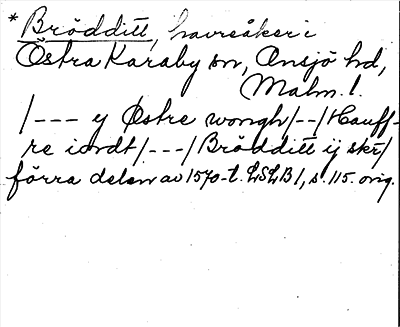 * Brödditt, havreåker i
Östra Karaby sn, Onsjö hd,
Malm. l.
/--- y Østre wongh/--/Hauff-
re iordt/---/Brödditt ij skr/
förra delen av 1570-t. LSLB 1, s. 115. orig.